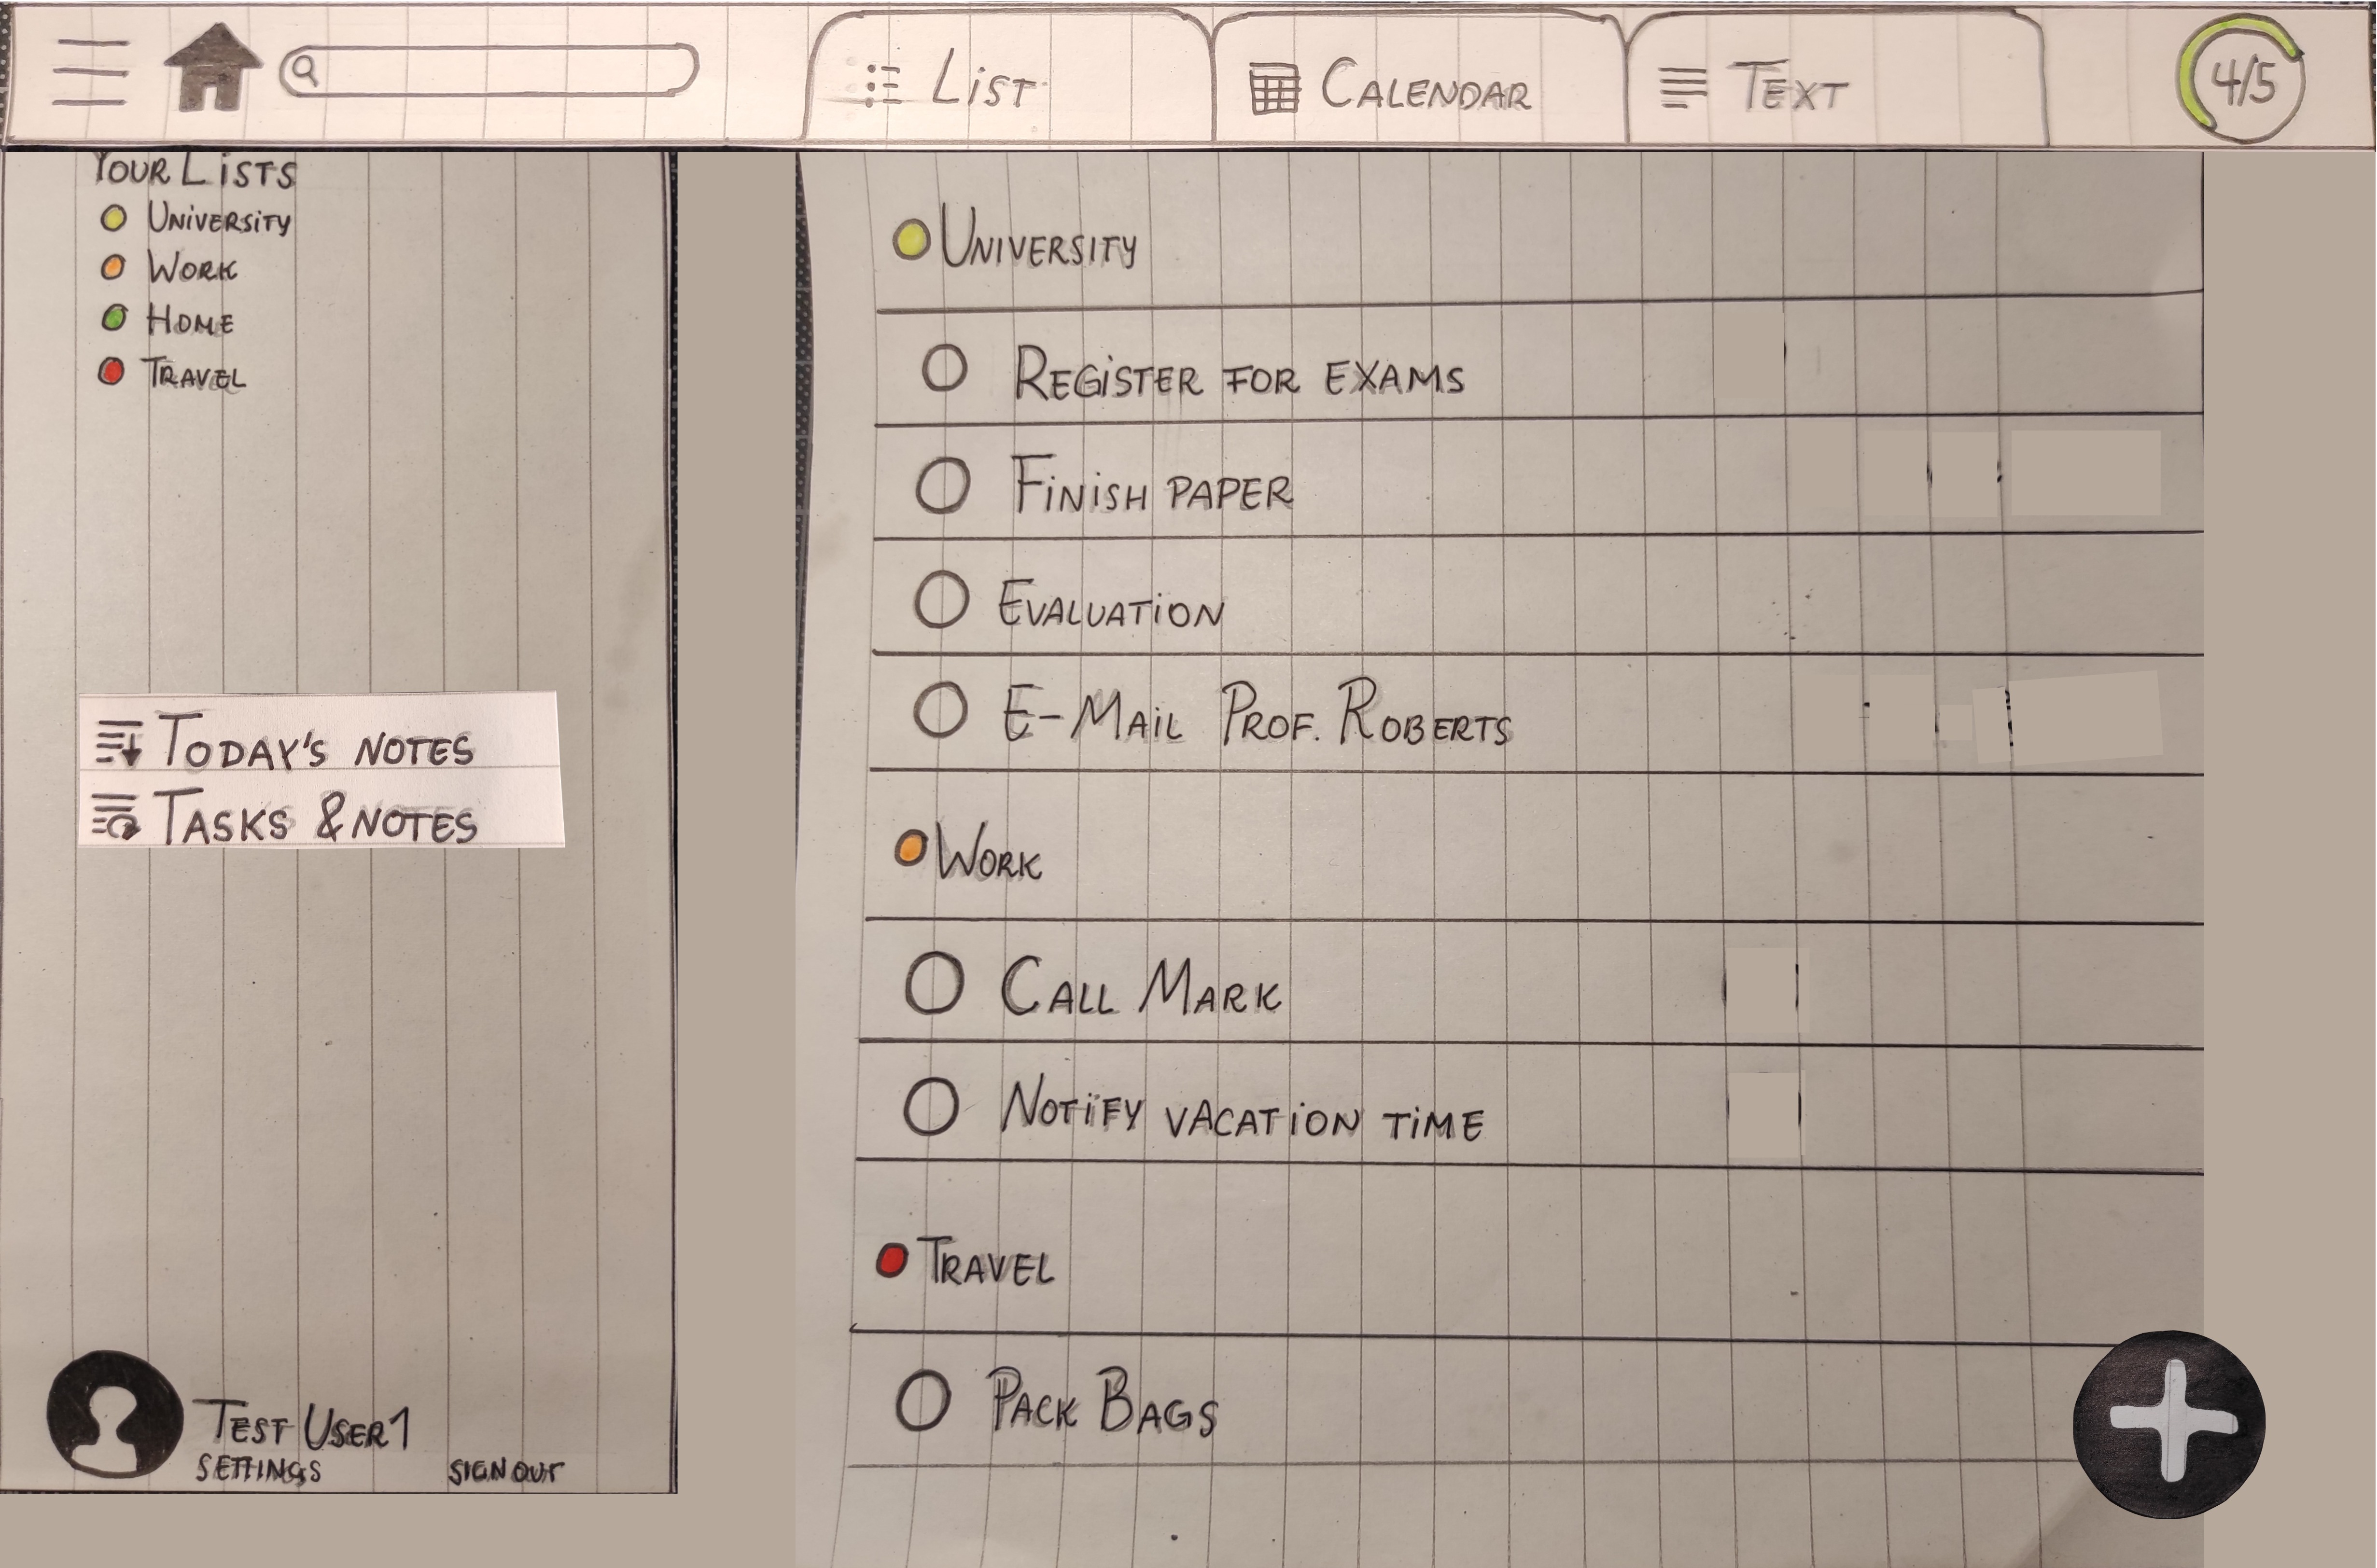 List
Calendar
Text
4/5
Your Lists
University
Work
Home
Travel
Today's notes
Tasks & notes
Test User 1
Settings
Sign out
University
Register for exams
Finish paper
Evaluation
E-Mail Prof. Roberts
Work
Call Mark
Notify vacation time
Travel
Pack Bags